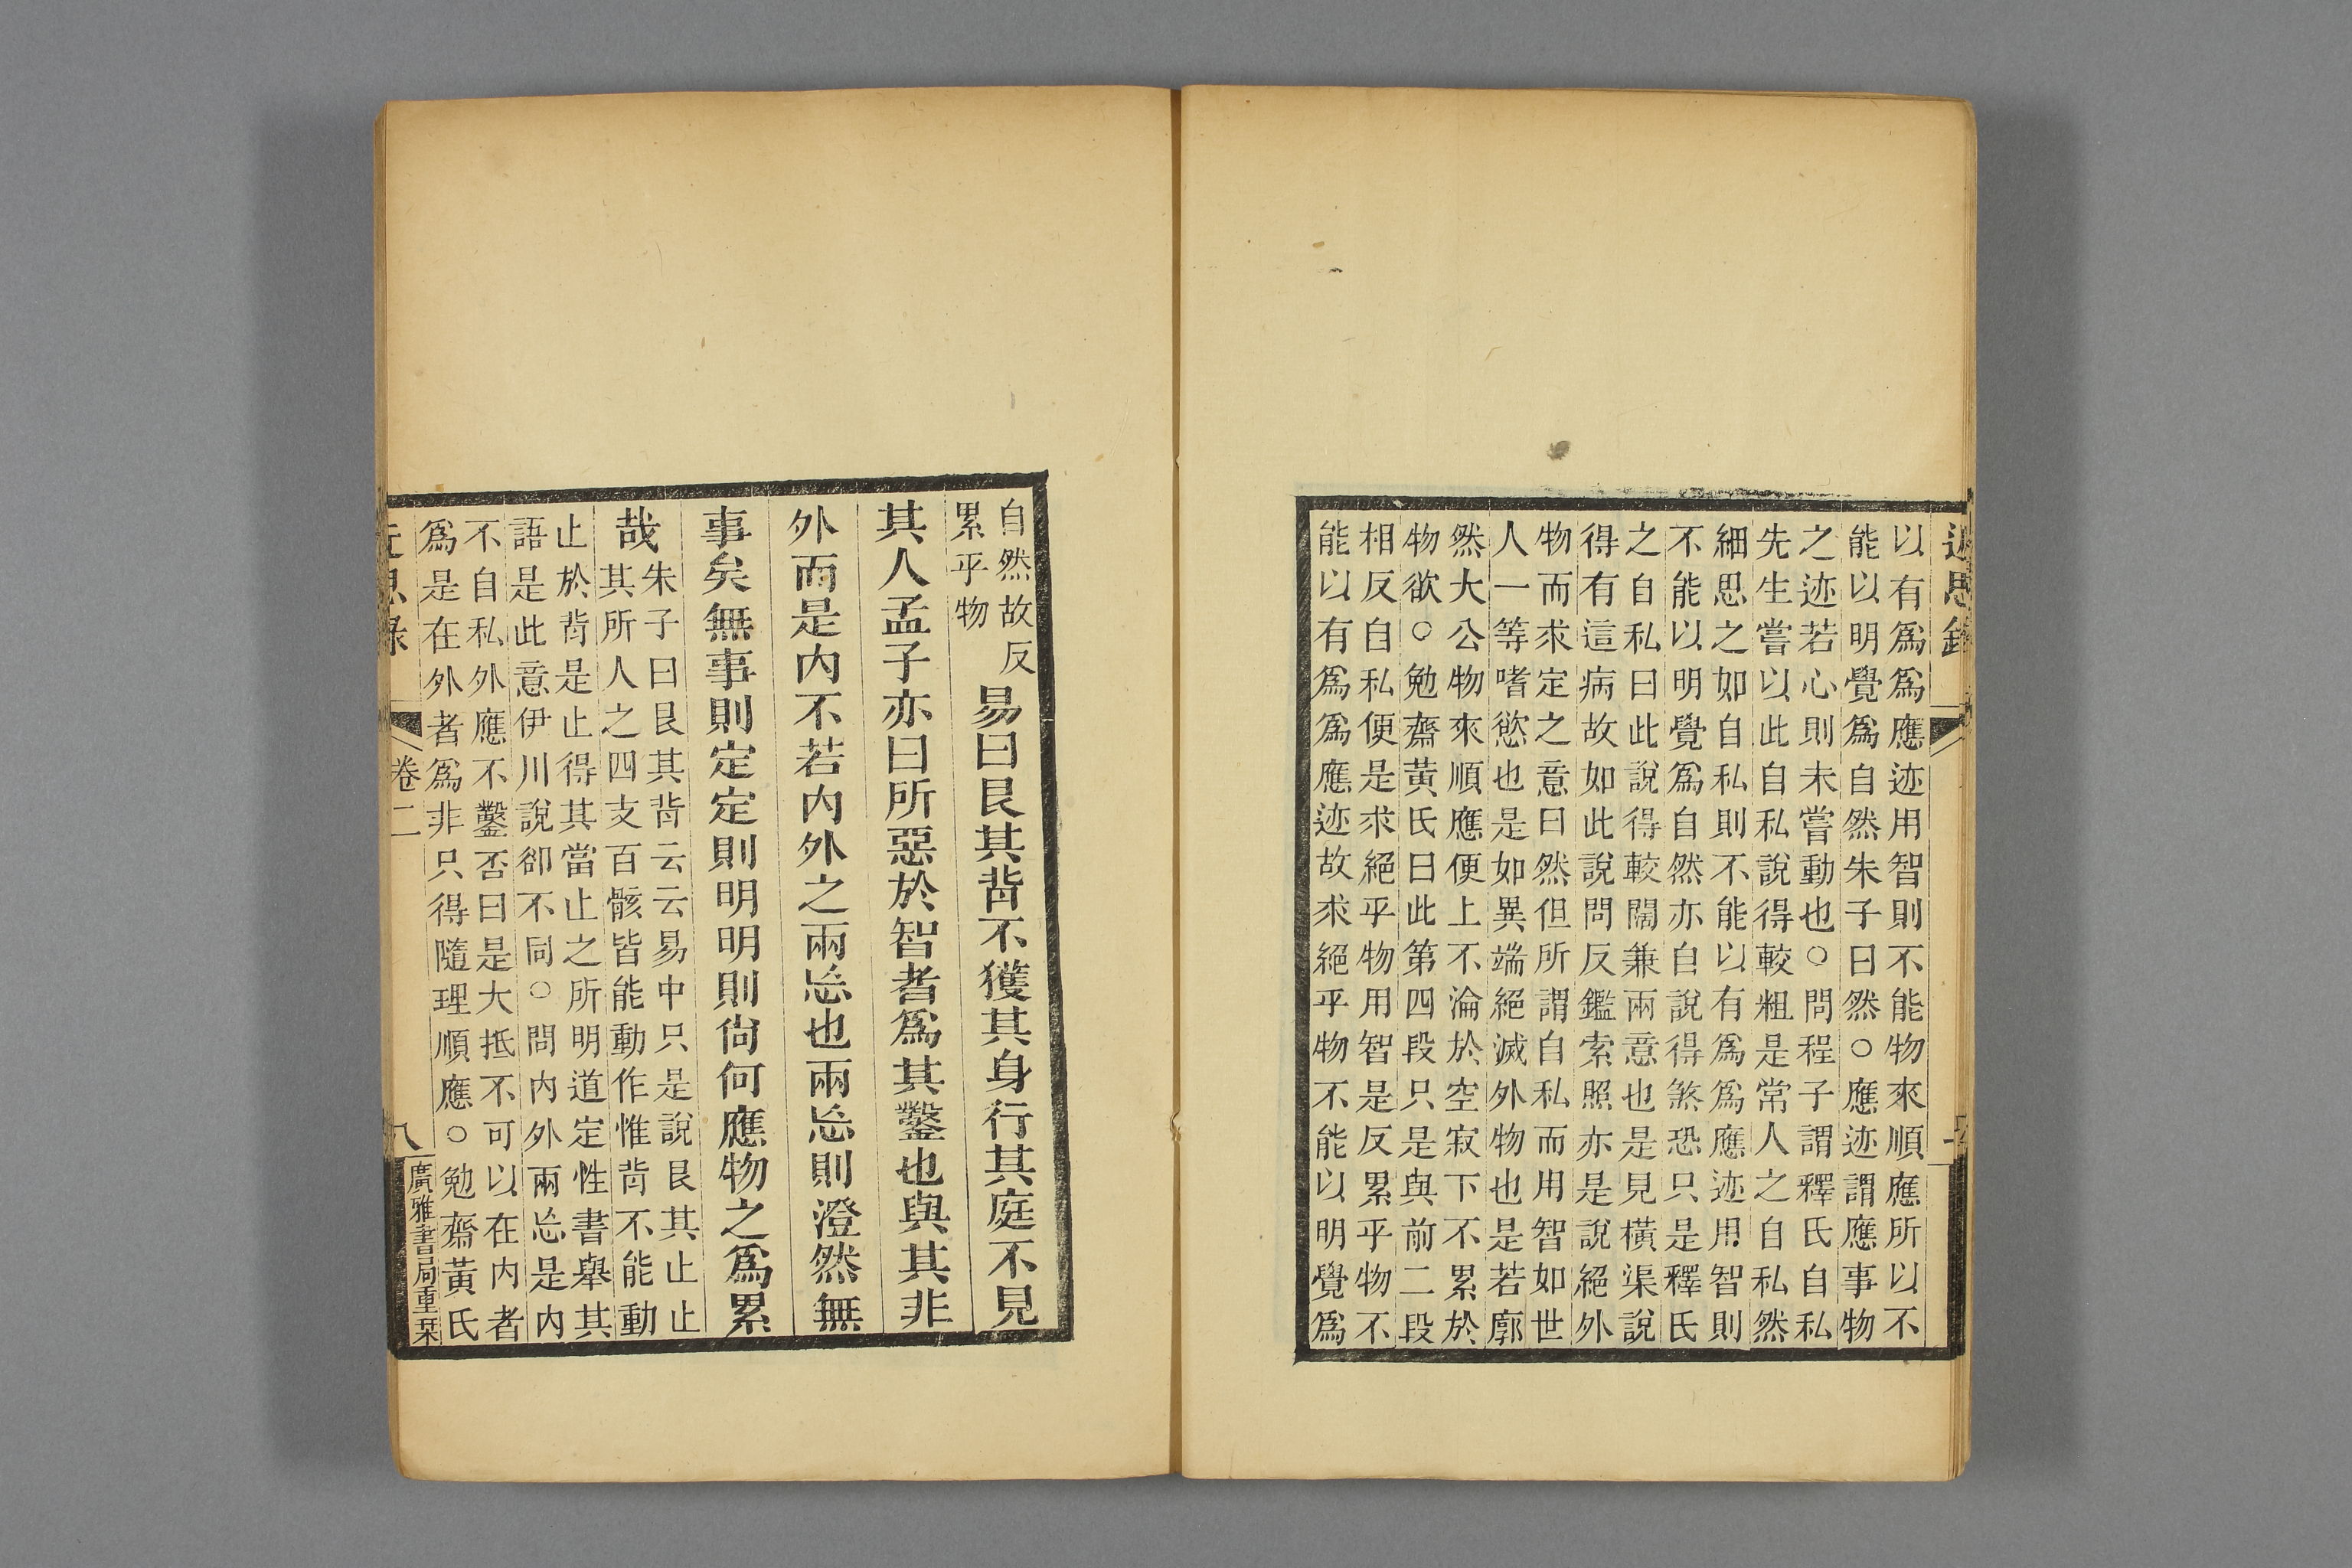 近思錄
以有爲爲應迹用智則不能物來順應所以不
能以明覺爲自然朱子曰然○應迹謂應事物
之迹若心則未嘗動也○問程子謂釋氏自私
先生嘗以此自私說得較粗是常人之自私然
細思之如自私則不能以有爲爲應迹用智則
不能以明覺爲自然亦自說得煞恐只是釋氏
之自私曰此說得較闊兼兩意也是見橫渠說
得有這病故如此說問反鑑索照亦是說絕外
物而求定之意曰然但所謂自私而用智如世
人一等嗜慾也是如異端絕滅外物也是若廓
然大公物來順應便上不淪於空寂下不累於
物欲○勉齋黃氏曰此第四段只是與前二段
相反自私便是求絕乎物用智是反累乎物不
能以有爲爲應迹故求絕乎物不能以明覺爲
自然故反
累乎物
易曰艮其背不獲其身行其庭不見
其人孟子亦曰所惡於智者爲其鑿也與其非
外而是內不若內外之兩忘也兩忘則澄然無
事矣無事則定定則明明則尙何應物之爲累
哉
朱子曰艮其背云云易中只是說艮其止止
其所人之四支百骸皆能動作惟背不能動
止於背是止得其當止之所明道定性書舉其
語是此意伊川說卻不同○問內外兩忘是內
不自私外應不鑿否曰是大抵不可以在內者
爲是在外者爲非只得隨理順應○勉齋黃氏
近思錄
卷二
八
廣雅書局重栞